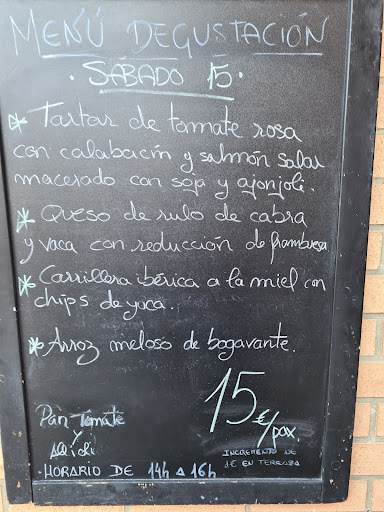 MENÚ DEGUSTACIÓN
· SÁBADO 15 ·
* Tartar de tomate rosa
con calabacín y salmón salar
macerado con soja y ajonjolí.
* Queso de rulo de cabra
y vaca con reducción de frambuesa
* Carrillera ibérica a la miel con
chips de yuca.
* Arroz meloso de bogavante.
15 €/pax.
Pan Tomate
y
Ali oli
INCREMENTO DE
1€ EN TERRAZA
· HORARIO DE 14h A 16h